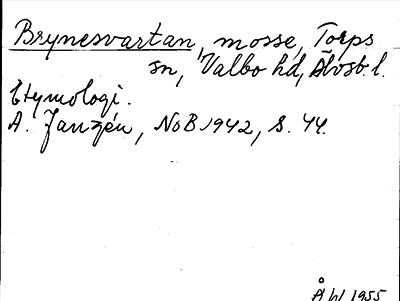 Brynesvartan, mosse, Torps
sn, Valbo hd, Älvsb. l.
Etymologi.
A. Janzén, NoB 1942, s. 44.
Å W 1955